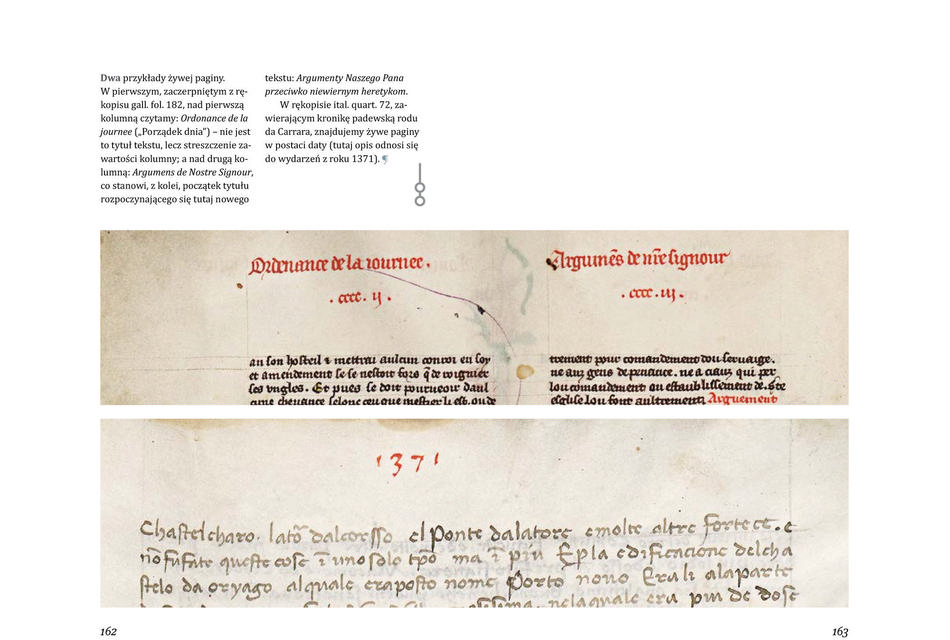 Dwa przykłady żywej paginy.
W pierwszym, zaczerpniętym z rę-
kopisu gall. fol. 182, nad pierwszą
kolumną czytamy: Ordonance de la
journee („Porządek dnia“) – nie jest
to tytuł tekstu, lecz streszczenie za-
wartości kolumny; a nad drugą ko-
lumną: Argumens de Nostre Signour,
co stanowi, z kolei, początek tytułu
rozpoczynającego się tutaj nowego
tekstu: Argumenty Naszego Pana
przeciwko niewiernym heretykom.
W rękopisie ital. quart. 72, za-
wierającym kronikę padewską rodu
da Carrara, znajdujemy żywe paginy
w postaci daty (tutaj opis odnosi się
do wydarzeń z roku 1371). ¶
Ordenance de la iournee.
. cccc. ij .
an son hosteil & mettrai aulcun conroi en soy
et amendement se se
ses vngles. Et pues se doit pourueoir daul
Argumēs de nr̄e signour
. cccc . iij .
trement pour comandement dou seruaige.
ne aux gens de penance. ne a ciaus qui per
lou comandement ou establissement de
eglise lou font aultrement. Arguement
1371
Chastelcharo. dalcorsso el Ponte dalatore emolte altre fortece. e
queste cose ī uno solo tpō ma ī piu Epla edificacione delcha
stelo da oryago alquale eraposto nome Porto nouo Erali alaparte
nelaquale era piu de dose
162
163